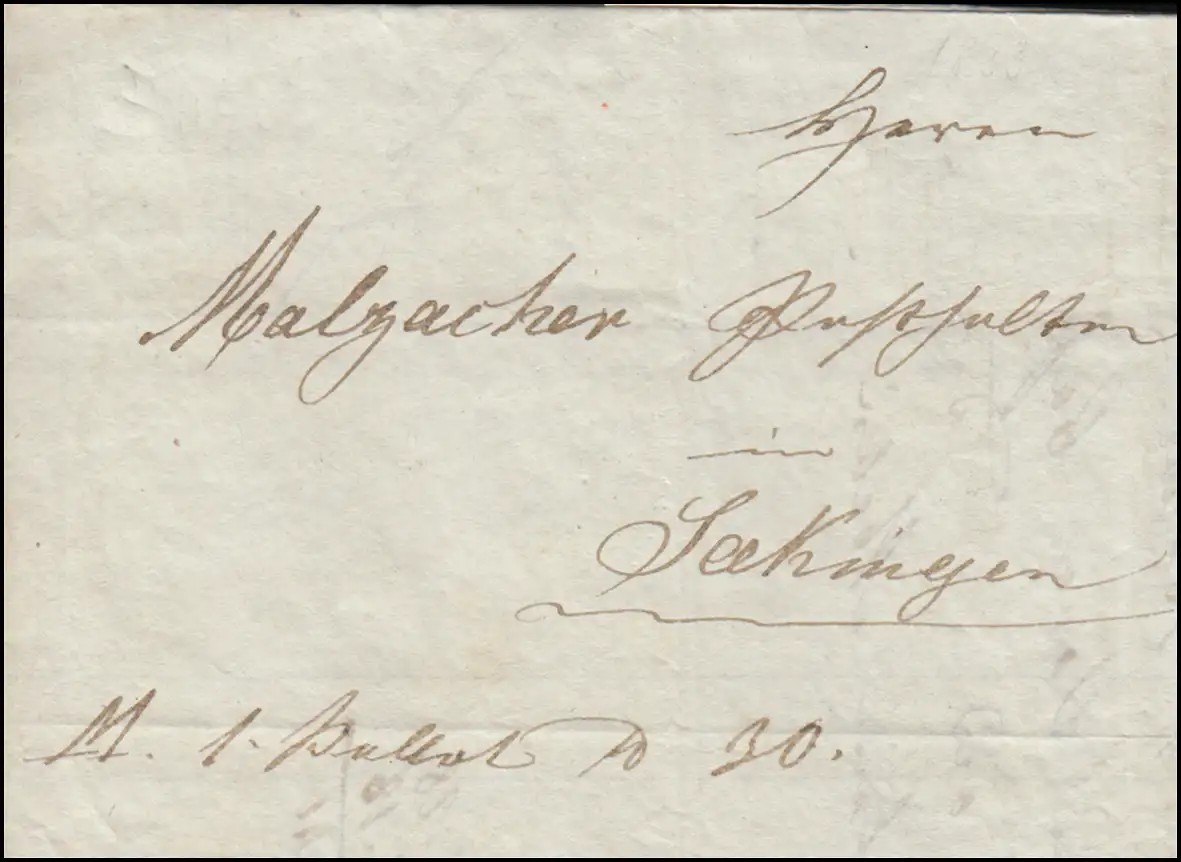 Herrn
Malzacher Posthalter
in
Sækingen
M. 1. Ballot ℔ 30.